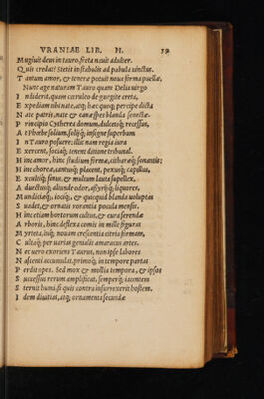 URANIAE LIB. II. 59
Mugiuit deus in tauro, freta nauit adulter.
Quis credat? Stetit in stabulis ad pabula uinctus.
Tantum amor, & tenerae potuit noua forma puellae.
Nunc age naturam Tauro quam Delus virgo
Indiderit, quam caeruleo de gurgite creta,
Expediam tibi nate, atq; haec quoq; percipe dicta
Nate patris, nate & canae spes blanda senectae.
Principio Cytherea domum, dulcesq; recessus,
At Phoebe solium, soliq; insigne superbum
In Tauro posuere: illi nam regia iura
Exercent, sociasq; tenent ditione tribunal.
Hinc amor, hinc studium formae, citharaeq; sonantis;
Hinc choreae, cantusq; placent, pexiq; capillus,
Excultusq; sinus, & multum lauta supellex,
Aduectusq; aliunde odor, assyrijq; liquores,
Munditiaeq;, iociq;, & quicquid blanda uoluptas
Suadet, & ornatis vorantia pocula mensis.
Hinc etiam hortorum cultus, & cura serendae
Arboris, hinc deflexa comis in mille figuras
Myrteta, situq; nouam crescentia citria formam,
Cultaq; per uarias genialis amaracus artes.
Nec uero exoriens Taurus, non ipse labores
Nascenti accumulat, primoq; in tempore partas
Perdit opes. Sed mox & mollia tempora, & ipsos
Successus rerum amplificat, semperq; iacentem
Sternit humi. si quis contra insurrexerit hostem.
Idem diuitias, atq; ornamenta secundae